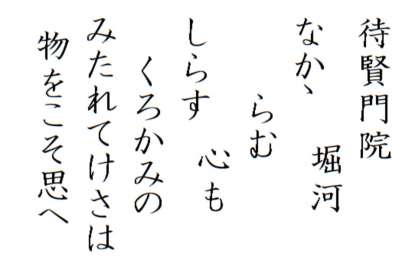 待賢門院
堀河
なかゝ
らむ
心も
しらす
くろかみの
みたれてけさは
物をこそ思へ